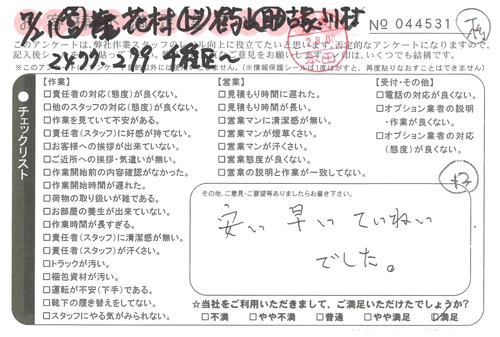 No 044531
このアンケートは、弊社作業スタッフのレベル向上に役立てたいと思います。否定的なアンケートになりますので、
※このアンケート
(※情報保護シールは1度はがすと、再度貼りなおすことはできません)
チェックリスト
【作業】
□責任者の対応(態度)が良くない。
□他のスタッフの対応(態度)が良くない。
□作業を見ていて不安がある。
□責任者(スタッフ)に好感が持てない。
□お客様への挨拶が出来ていない。
□ご近所への挨拶・気遣いが無い。
□作業開始前の内容確認がなかった。
□作業開始時間が遅れた。
□荷物の取り扱いが雑である。
□お部屋の養生が出来ていない。
□作業時間が長すぎる。
□責任者(スタッフ)に清潔感が無い。
□責任者(スタッフ)が汗くさい。
□トラックが汚い。
□梱包資材が汚い。
□運転が不安(下手)である。
□靴下の履き替えをしてない。
□スタッフにやる気がみられない。
【営業】
□見積もり時間に遅れた。
□見積もり時間が長い。
□営業マンに清潔感が無い。
□営業マンが煙草くさい。
□営業マンが汗くさい。
□営業態度が良くない。
□営業の説明と作業が一致してない。
【受付・その他】
□電話の対応が良くない。
□オプション業者の説明
・作業が良くない。
□オプション業者の対応
(態度)が良くない。
その他、ご意見・ご要望等ありましたらお書き下さい。
安い 早い ていねい
でした。
☆当社をご利用いただきまして、ご満足いただけたでしょうか?
□不満 □やや不満 □普通 □やや満足 ☑満足